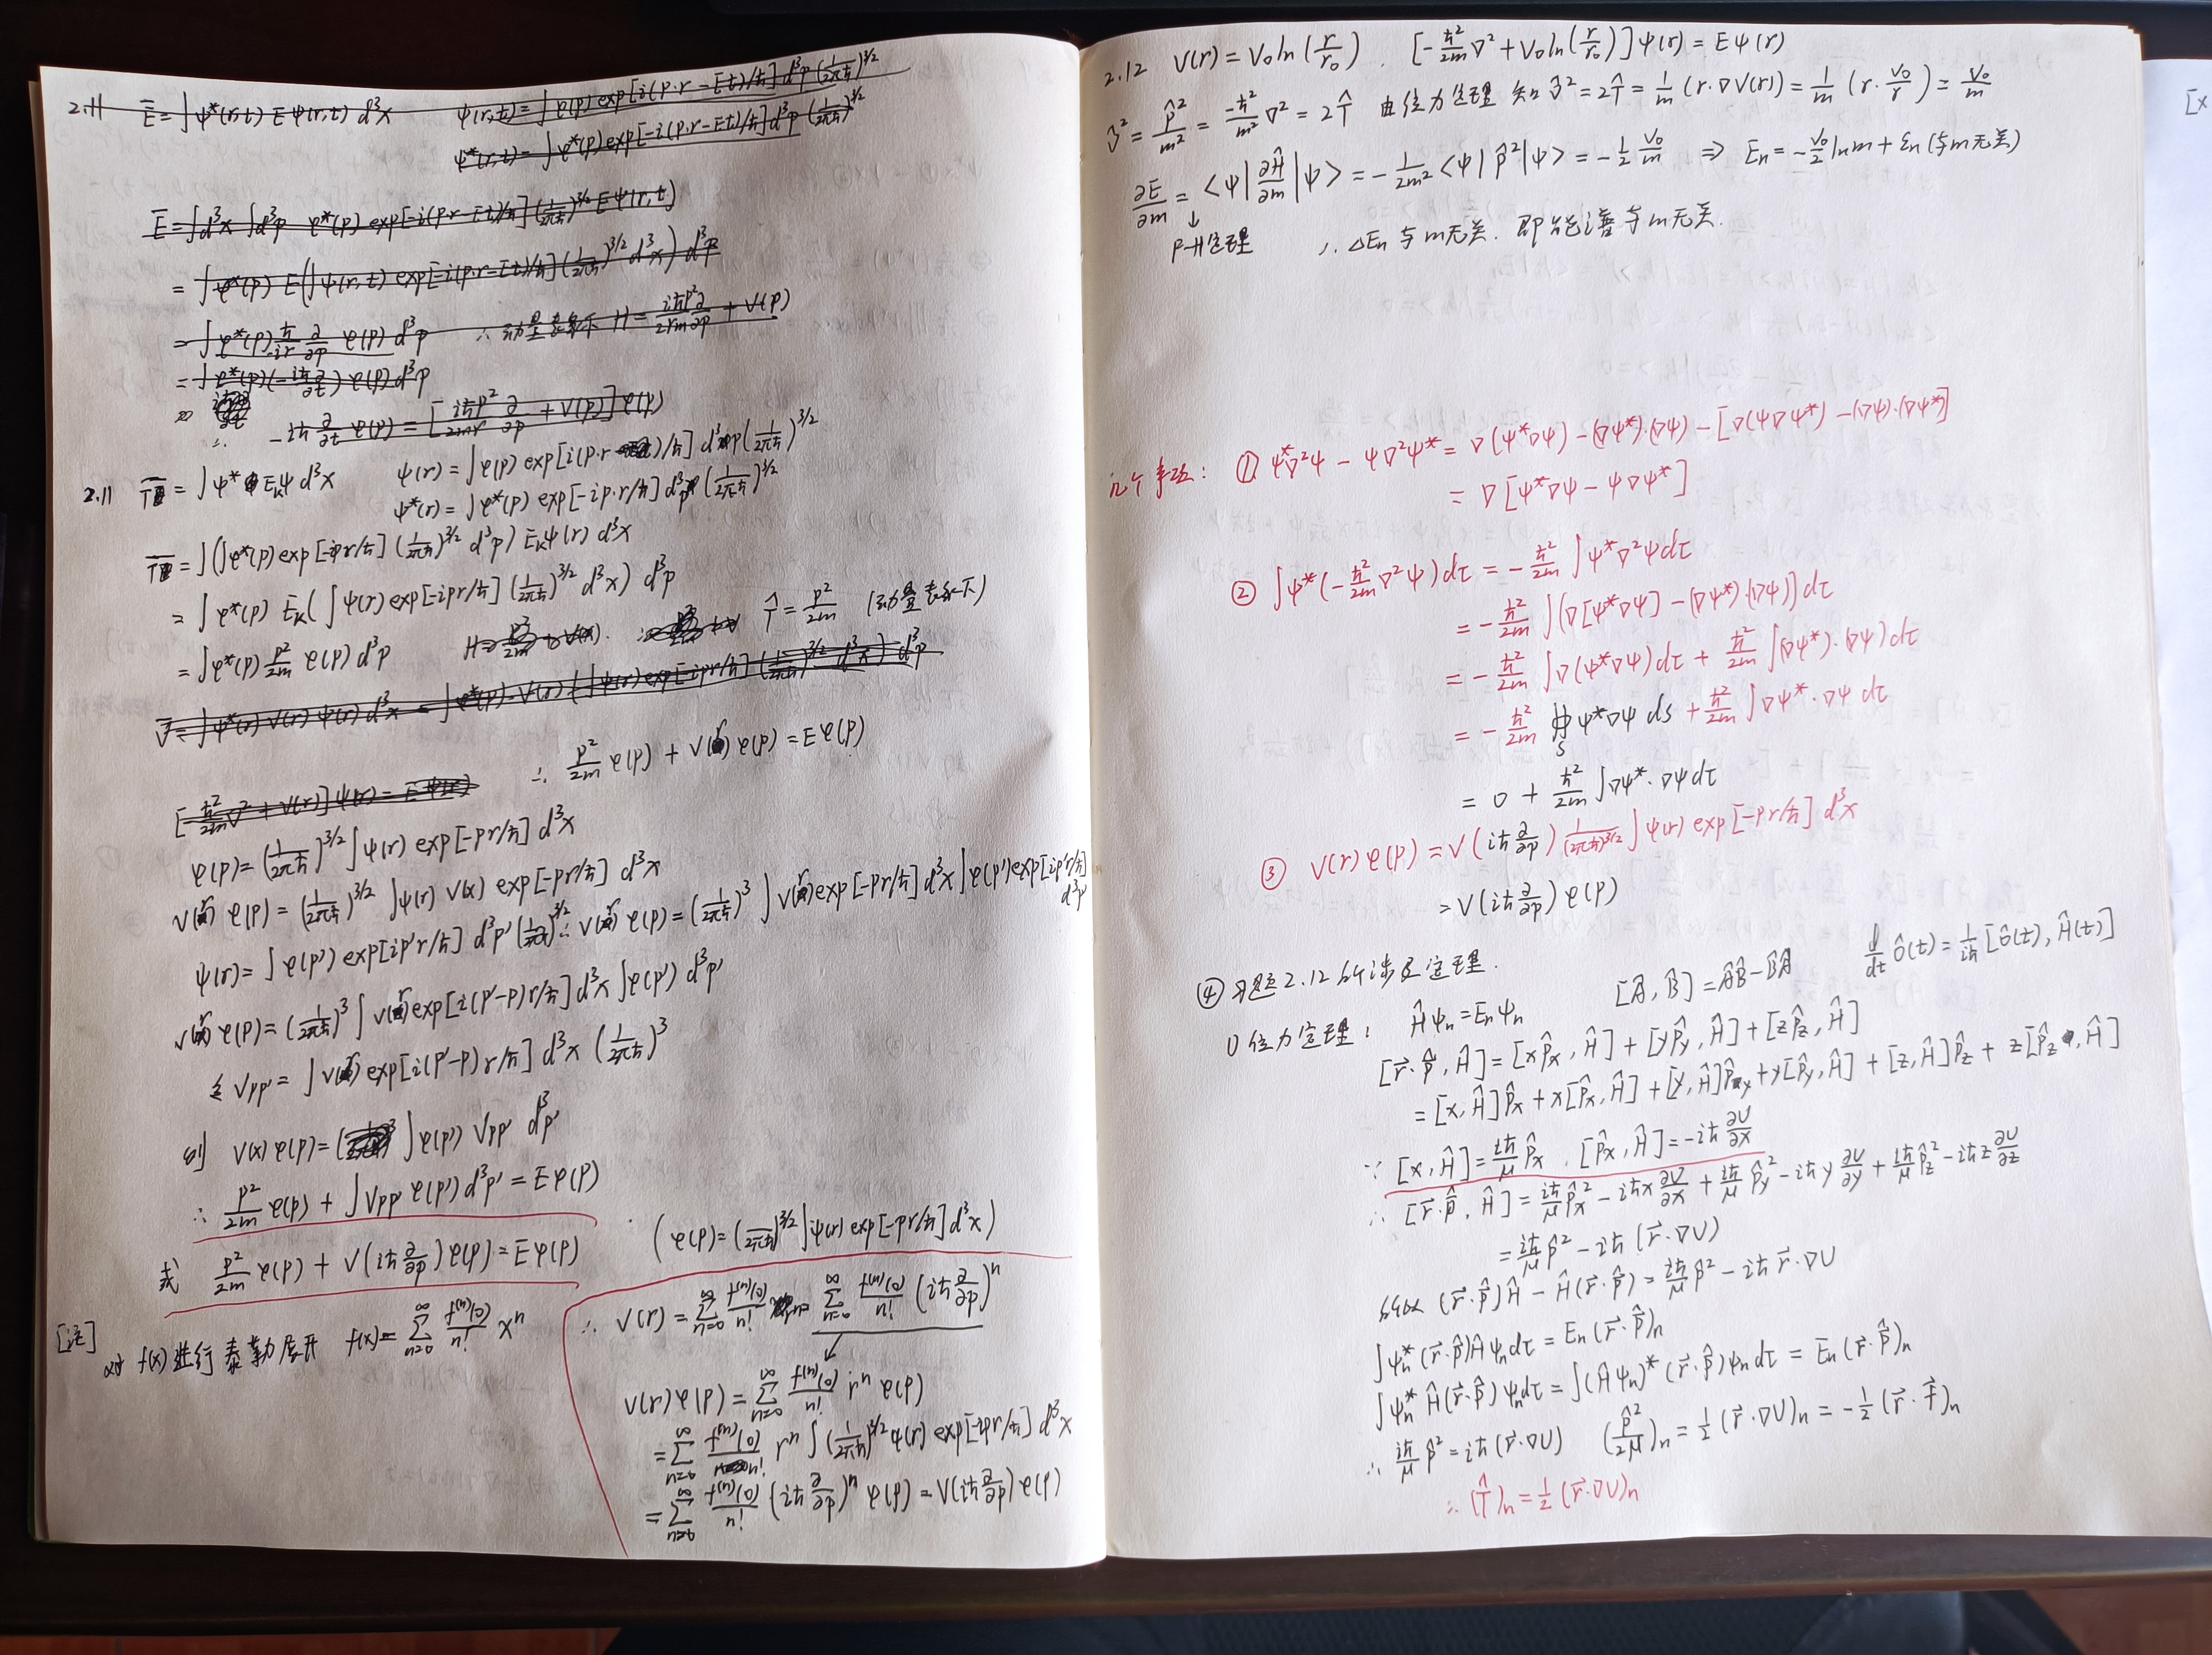 2.11 Ē = ∫ψ*(r,t) E ψ(r,t) d³x    ψ(r,t) = ∫φ(p) exp[i(p·r-Et)/ħ] d³p (1/2πħ)^{3/2}
ψ*(r,t) = ∫φ*(p) exp[-i(p·r-Et)/ħ] d³p (1/2πħ)^{3/2}
Ē = ∫d³x ∫d³p φ*(p) exp[-i(p·r-Et)/ħ] (1/2πħ)^{3/2} E ψ(r,t)
= ∫φ*(p) E (∫ψ(r,t) exp[-i(p·r-Et)/ħ] (1/2πħ)^{3/2} d³x) d³p
= ∫φ*(p) ħ/-ir ∂/∂p φ(p) d³p    ∴ 动量表象下 H = iħp²∂/2rm∂p + V(p)
= ∫φ*(p) (-iħ∂/∂t) φ(p) d³p
∴ -iħ ∂/∂t φ(p) = [iħp²/2mr ∂/∂p + V(p)] φ(p)
2.11 T̄ = ∫ψ* E_k ψ d³x    ψ(r) = ∫φ(p) exp[i(p·r)/ħ] d³p (1/2πħ)^{3/2}
ψ*(r) = ∫φ*(p) exp[-ip·r/ħ] d³p (1/2πħ)^{3/2}
T̄ = ∫(∫φ*(p) exp[-ipr/ħ] (1/2πħ)^{3/2} d³p) E_k ψ(r) d³x
= ∫φ*(p) E_k (∫ψ(r) exp[-ipr/ħ] (1/2πħ)^{3/2} d³x) d³p
= ∫φ*(p) p²/2m φ(p) d³p    H = p²/2m + V(x).    T̂ = p²/2m (动量表象下)
V̄ = ∫ψ*(r) V(r) ψ(r) d³x = ∫φ*(p)·V(r) (∫ψ(r) exp[-ipr/ħ] (1/2πħ)^{3/2} d³x) d³p
∴ p²/2m φ(p) + V(r) φ(p) = E φ(p)
[-ħ²/2m ∇² + V(r)] ψ(r) = E ψ(r)
φ(p) = (1/2πħ)^{3/2} ∫ψ(r) exp[-pr/ħ] d³x
V(r) φ(p) = (1/2πħ)^{3/2} ∫ψ(r) V(x) exp[-pr/ħ] d³x
ψ(r) = ∫φ(p') exp[ip'r/ħ] d³p' (1/2πħ)^{3/2} ∴ V(r) φ(p) = (1/2πħ)³ ∫V(r) exp[-pr/ħ] d³x ∫φ(p') exp[ip'r/ħ] d³p'
V(r) φ(p) = (1/2πħ)³ ∫V(r) exp[i(p'-p)r/ħ] d³x ∫φ(p') d³p'
令 V_pp' = ∫V(r) exp[i(p'-p)r/ħ] d³x (1/2πħ)³
则 V(x) φ(p) = ∫φ(p') V_pp' d³p'
∴ p²/2m φ(p) + ∫V_pp' φ(p') d³p' = E φ(p)
或 p²/2m φ(p) + V(iħ ∂/∂p) φ(p) = E φ(p)    (φ(p) = (1/2πħ)^{3/2} ∫ψ(r) exp[-pr/ħ] d³x)
[注] 对 f(x) 进行泰勒展开 f(x) = Σ_{n=0}^∞ f^{(n)}(0)/n! xⁿ
∴ V(r) = Σ_{n=0}^∞ f^{(n)}(0)/n! rⁿ = Σ_{n=0}^∞ f^{(n)}(0)/n! (iħ ∂/∂p)ⁿ
↓
V(r) φ(p) = Σ_{n=0}^∞ f^{(n)}(0)/n! rⁿ φ(p)
= Σ_{n=0}^∞ f^{(n)}(0)/n! rⁿ ∫(1/2πħ)^{3/2} ψ(r) exp[-ipr/ħ] d³x
= Σ_{n=0}^∞ f^{(n)}(0)/n! (iħ ∂/∂p)ⁿ φ(p) = V(iħ ∂/∂p) φ(p)
2.12 V(r) = V₀ ln(r/r₀). [-ħ²/2m ∇² + V₀ ln(r/r₀)] ψ(r) = E ψ(r)
v̂² = p̂²/m² = -ħ²/m² ∇² = 2T̂ 由位力定理 知 v̂² = 2T̂ = 1/m (r·∇V(r)) = 1/m (r·V₀/r) = V₀/m
∂E/∂m = <ψ|∂Ĥ/∂m|ψ> = -1/2m² <ψ|p̂²|ψ> = -1/2 V₀/m ⇒ En = -V₀/2 ln m + εn (与m无关)
↓
F-H定理    ∴ ΔEn 与m无关. 即能谱与m无关.
几个事项: ① ψ*∇²ψ - ψ∇²ψ* = ∇(ψ*∇ψ) - (∇ψ*)·(∇ψ) - [∇(ψ∇ψ*) - (∇ψ)·(∇ψ*)]
= ∇[ψ*∇ψ - ψ∇ψ*]
② ∫ψ*(-ħ²/2m ∇²ψ) dτ = -ħ²/2m ∫ψ*∇²ψ dτ
= -ħ²/2m ∫(∇[ψ*∇ψ] - (∇ψ*)·(∇ψ)) dτ
= -ħ²/2m ∫∇(ψ*∇ψ) dτ + ħ²/2m ∫(∇ψ*)·(∇ψ) dτ
= -ħ²/2m ∯_S ψ*∇ψ ds + ħ²/2m ∫∇ψ*·∇ψ dτ
= 0 + ħ²/2m ∫∇ψ*·∇ψ dτ
③ V(r) φ(p) = V(iħ ∂/∂p) 1/(2πħ)^{3/2} ∫ψ(r) exp[-pr/ħ] d³x
= V(iħ ∂/∂p) φ(p)
④ 习题2.12所涉及定理.    [Â, B̂] = ÂB̂ - B̂Â    d/dt ô(t) = 1/iħ [ô(t), Ĥ(t)]
1) 位力定理: Ĥψn = Enψn
[r⃗·p̂, Ĥ] = [xp̂x, Ĥ] + [yp̂y, Ĥ] + [zp̂z, Ĥ]
= [x, Ĥ]p̂x + x[p̂x, Ĥ] + [y, Ĥ]p̂y + y[p̂y, Ĥ] + [z, Ĥ]p̂z + z[p̂z, Ĥ]
∵ [x, Ĥ] = iħ/μ p̂x, [p̂x, Ĥ] = -iħ ∂U/∂x
∴ [r⃗·p̂, Ĥ] = iħ/μ p̂x² - iħx ∂U/∂x + iħ/μ p̂y² - iħy ∂U/∂y + iħ/μ p̂z² - iħz ∂U/∂z
= iħ/μ p̂² - iħ (r⃗·∇U)
所以 (r⃗·p̂)Ĥ - Ĥ(r⃗·p̂) = iħ/μ p̂² - iħ r⃗·∇U
∫ψn* (r⃗·p̂)Ĥ ψn dτ = En (r⃗·p̂)n
∫ψn* Ĥ(r⃗·p̂) ψn dτ = ∫(Ĥψn)* (r⃗·p̂)ψn dτ = En (r⃗·p̂)n
∴ iħ/μ p̂² = iħ (r⃗·∇U)    (p̂²/2μ)n = 1/2 (r⃗·∇U)n = -1/2 (r⃗·F⃗)n
∴ (T̂)n = 1/2 (r⃗·∇U)n
[x